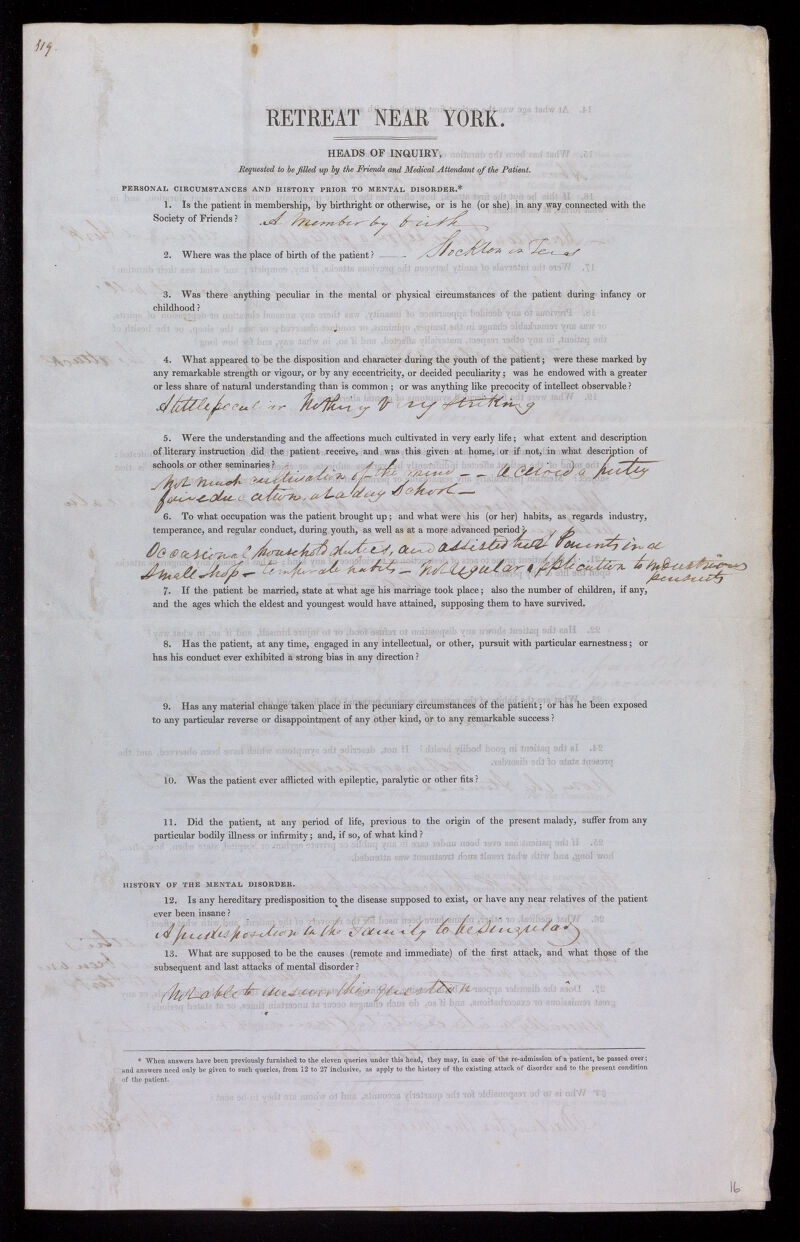 519.
RETREAT NEAR YORK.
HEADS OF INQUIRY,
Requested to be filled up by the Friends and Medical Attendant of the Patient.
PERSONAL CIRCUMSTANCES AND HISTORY PRIOR TO MENTAL DISORDER.*
1. Is the patient in membership, by birthright or otherwise, or is he (or she) in any way connected with the
Society of Friends? A Member by birth
2. Where was the place of birth of the patient? Stockton on Tees
3. Was there anything peculiar in the mental or physical circumstances of the patient during infancy or
childhood?
4. What appeared to be the disposition and character during the youth of the patient; were these marked by
any remarkable strength or vigour, or by any eccentricity, or decided peculiarity; was he endowed with a greater
or less share of natural understanding than is common; or was anything like precocity of intellect observable?
A little peculiar Nothing very striking
5. Were the understanding and the affections much cultivated in very early life; what extent and description
of literary instruction did the patient receive, and was this given at home, or if not, in what description of
schools or other seminaries?
Not much cultivation of the mind — received a pretty
fair education, at a day School —
6. To what occupation was the patient brought up; and what were his (or her) habits, as regards industry,
temperance, and regular conduct, during youth, as well as at a more advanced period?
Occasional household duties, and assisted her Parents in a
Small shop — temperate habits — Not regular application to industrious
pursuits
7. If the patient be married, state at what age his marriage took place; also the number of children, if any,
and the ages which the eldest and youngest would have attained, supposing them to have survived.
8. Has the patient, at any time, engaged in any intellectual, or other, pursuit with particular earnestness; or
has his conduct ever exhibited a strong bias in any direction?
9. Has any material change taken place in the pecuniary circumstances of the patient; or has he been exposed
to any particular reverse or disappointment of any other kind, or to any remarkable success?
10. Was the patient ever afflicted with epileptic, paralytic or other fits?
11. Did the patient, at any period of life, previous to the origin of the present malady, suffer from any
particular bodily illness or infirmity; and, if so, of what kind?
HISTORY OF THE MENTAL DISORDER.
12. Is any hereditary predisposition to the disease supposed to exist, or have any near relatives of the patient
ever been insane?
A predisposition in the Family to be Singular
13. What are supposed to be the causes (remote and immediate) of the first attack, and what those of the
subsequent and last attacks of mental disorder?
Not able to answer this question
* When answers have been previously furnished to the eleven queries under this head, they may, in case of the re-admission of a patient, be passed over;
and answers need only be given to such queries, from 12 to 27 inclusive, as apply to the history of the existing attack of disorder and to the present condition
of the patient.
16